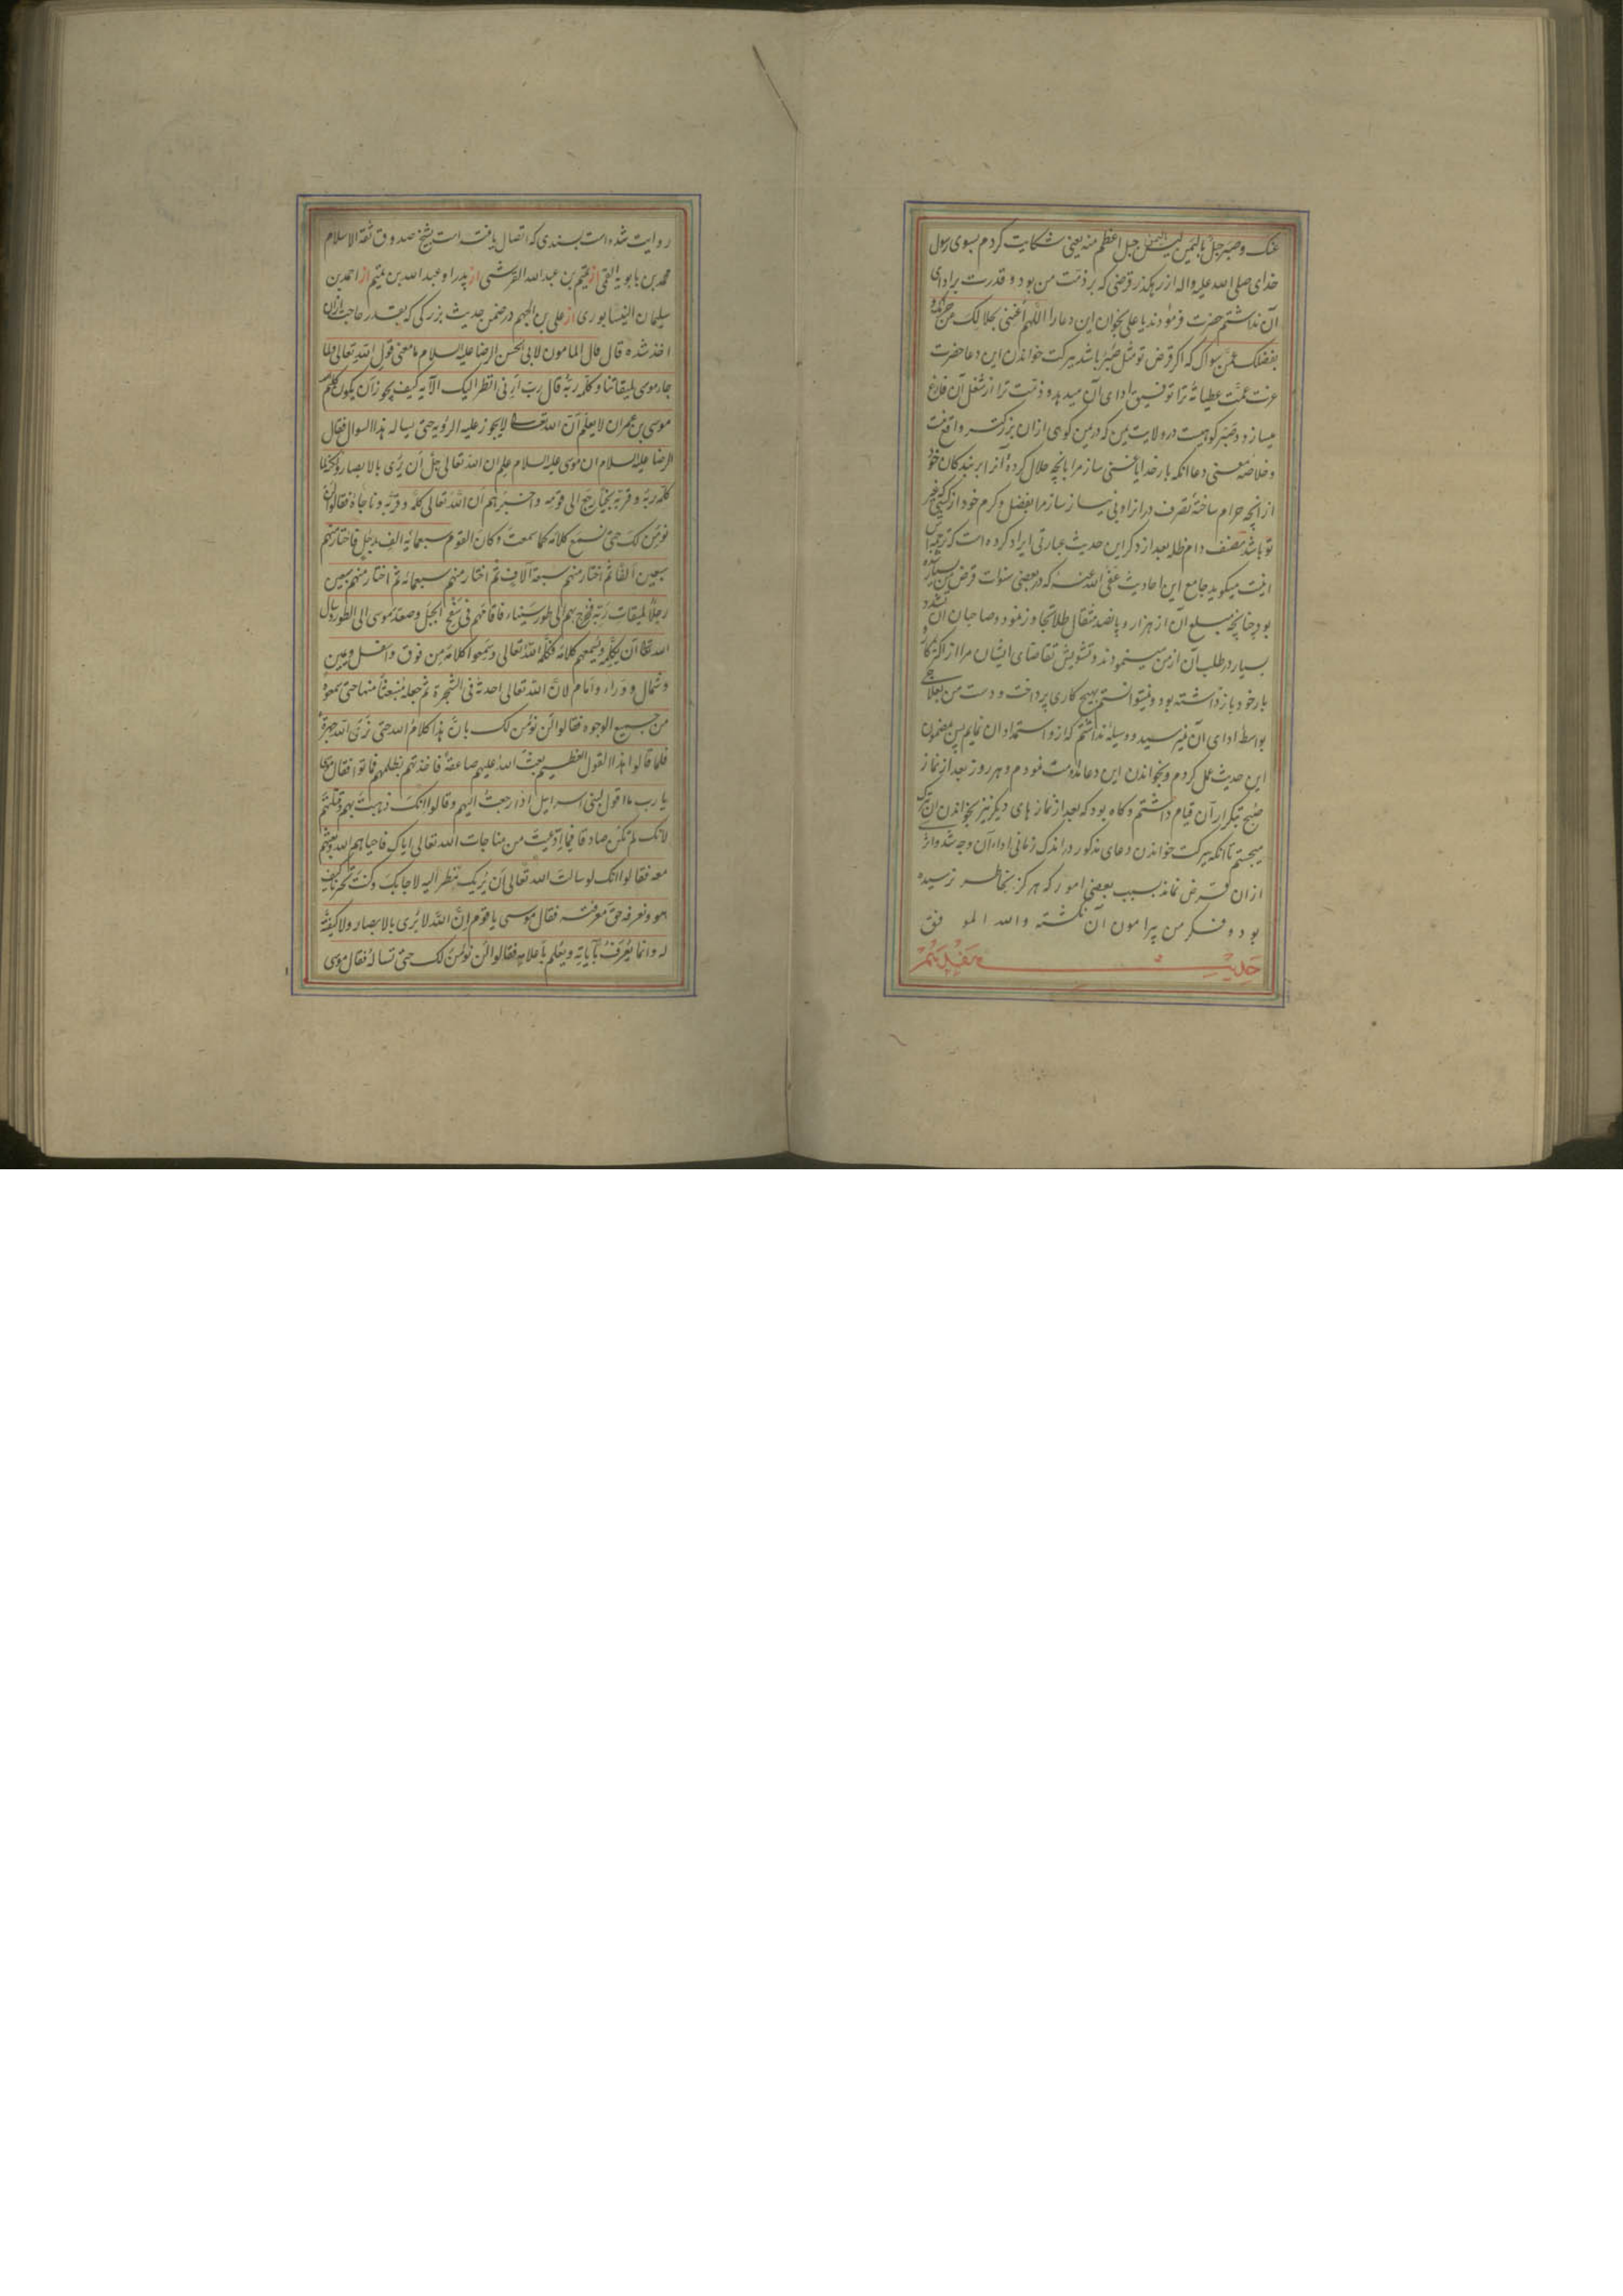 عنک وصَبیر جبل بالیمن لیس بالیمن جبل اعظم منه یعنی شکایت کردم بسوی رسول
خدای صلی الله علیه واله از رهکذر قرضی که بر ذمّت من بود و قدرت بر ادای
آن نداشتم حضرت فرمودند یا علی بخوان این دعا را اللّهم اَغنِنی بحلالک عن حرامک و
بفضلک عمّن سواک که اکر قرض تو مثل صَبیر باشد ببرکت خواندن این دعا حضرت
عزت عمّت عطیاته ترا توفیق ادای آن میدهد و ذمّت ترا از شغل آن فارغ
میسازد و صَبیر کوهیست در ولایت یمن که در یمن کوهی از ان بزرکتر واقع نیست
و خلاصه معنی دعا انکه بار خدایا غنی ساز مرا بانچه حلال کردهٔ آنرا بر بندکان خود
از انچه حرام ساختهٔ تصرف در انرا و بی نیاز ساز مرا بفضل و کرم خود از کسی که غیر
تو باشد مصنف دام ظله بعد از ذکر این حدیث عبارتی ایراد کرده است که ترجمه اش
اینست میکوید جامع این احادیث عفی الله عنه که در بعضی سنوات قرض من بسیار شده
بود چنانچه مبلغ آن از هزار و پانصد مثقال طلا تجاوز نمود و صاحبان آن تشدد
بسیار در طلب آن از من مینمودند و تشویش تقاضای ایشان مرا از اکثر کار و
بار خود باز داشته بود و نمیتوانستم بهیچ کاری پرداخت و دست من بعلاجی
بواسطه ادای آن نمیرسید و وسیلهٔ نداشتم که ازو استمداد ان نمایم پس بمضمون
این حدیث عمل کردم و بخواندن این دعا مداومت نمودم و هر روز بعد از نماز
صبح بتکرار آن قیام داشتم و کاه بود که بعد از نماز های دیکر نیز بخواندن ان تبرک
میجستم تا انکه ببرکت خواندن دعای مذکور در اندک زمانی اداء آن وجه شد و اثر
ازان قرض نماند بسبب بعضی امور که هرکز بخاطر نرسیده
بود و فکر من پیرامون آن نکشته والله الموفق
حدیث هفدهم
روایت شده است بسندی که اتصال یافته است بشیخ صدوق ثقة الاسلام
محمد بن بابویه القمی از تمیم بن عبد الله القرشی از پدر او عبد الله بن تمیم از احمد بن
سلیمان النیسابوری از علی بن الجهم در ضمن حدیث بزرکی که بقدر حاجت ازان
اخذ شده قال قال المامون لابی الحسن الرضا علیه السلام ما معنی قول الله تعالی ولما
جاء موسی لمیقاتنا وکلّمه ربّه قال ربّ اَرِنی انظر الیک الآیه کیف یجوز اَن یکون کلیم
موسی بن عمران لا یعلم اَن الله تعالی لا یجوز علیه الرؤیه حتی یساله هذا السوال فقال
الرضا علیه السلام ان موسی علیه السلام علم ان الله تعالی جلّ اَن یُری بالابصار ولکنه لما
کلّمه ربّه و قرّبه نجیّا رجع الی قومه و اخبرهم اَن الله تعالی کلّمه و قرّبه و ناجاه فقالوا لن
نؤمن لک حتی نسمع کلامه کما سمعتَ وکان القوم سبعمائة الف رجل فاختار منهم
سبعین الفًا ثم اختار منهم سبعة آلاف ثم اختار منهم سبعمائه ثم اختار منهم سبعین
رجلًا لمیقات ربّه فخرج بهم الی طور سیناء فاقامهم فی سفح الجبل و صعد موسی الی الطور وسال
الله تعالی اَن یکلّمه و یُسمعهم کلامه فکلّمه الله تعالی وسمعوا کلامه من فوق و اسفل و یمین
و شمال و وراء و امام لانّ الله تعالی احدثه فی الشجرة ثم جعله منبعثًا منها حتی سمعوه
من جمیع الوجوه فقالوا لن نؤمن لک بانّ هذا کلام الله حتی نری الله جهرة
فلما قالوا هذا القول العظیم بعث الله علیهم صاعقة فاخذتهم بظلمهم فماتوا فقال موسی
یا رب ما اقول لبنی اسرائیل اذا رجعتُ الیهم وقالوا انک ذهبتَ بهم وقتلتهم
لانک لم تکن صادقا فیما ادّعیتَ من مناجات الله تعالی ایاک فاحیاهم الله و بعثهم
معه فقالوا انک لو سالتَ الله تعالی اَن یُریک تنظر الیه لاجابک وکنتَ تخبرنا کیف
هو و نعرفه حق معرفته فقال موسی یا قوم اِنَّ الله لا یُری بالابصار ولا کیفیّة
له و انما یُعرف بآیاته و یُعلم باَعلامه فقالوا لن نؤمن لک حتی تساله فقال موسی